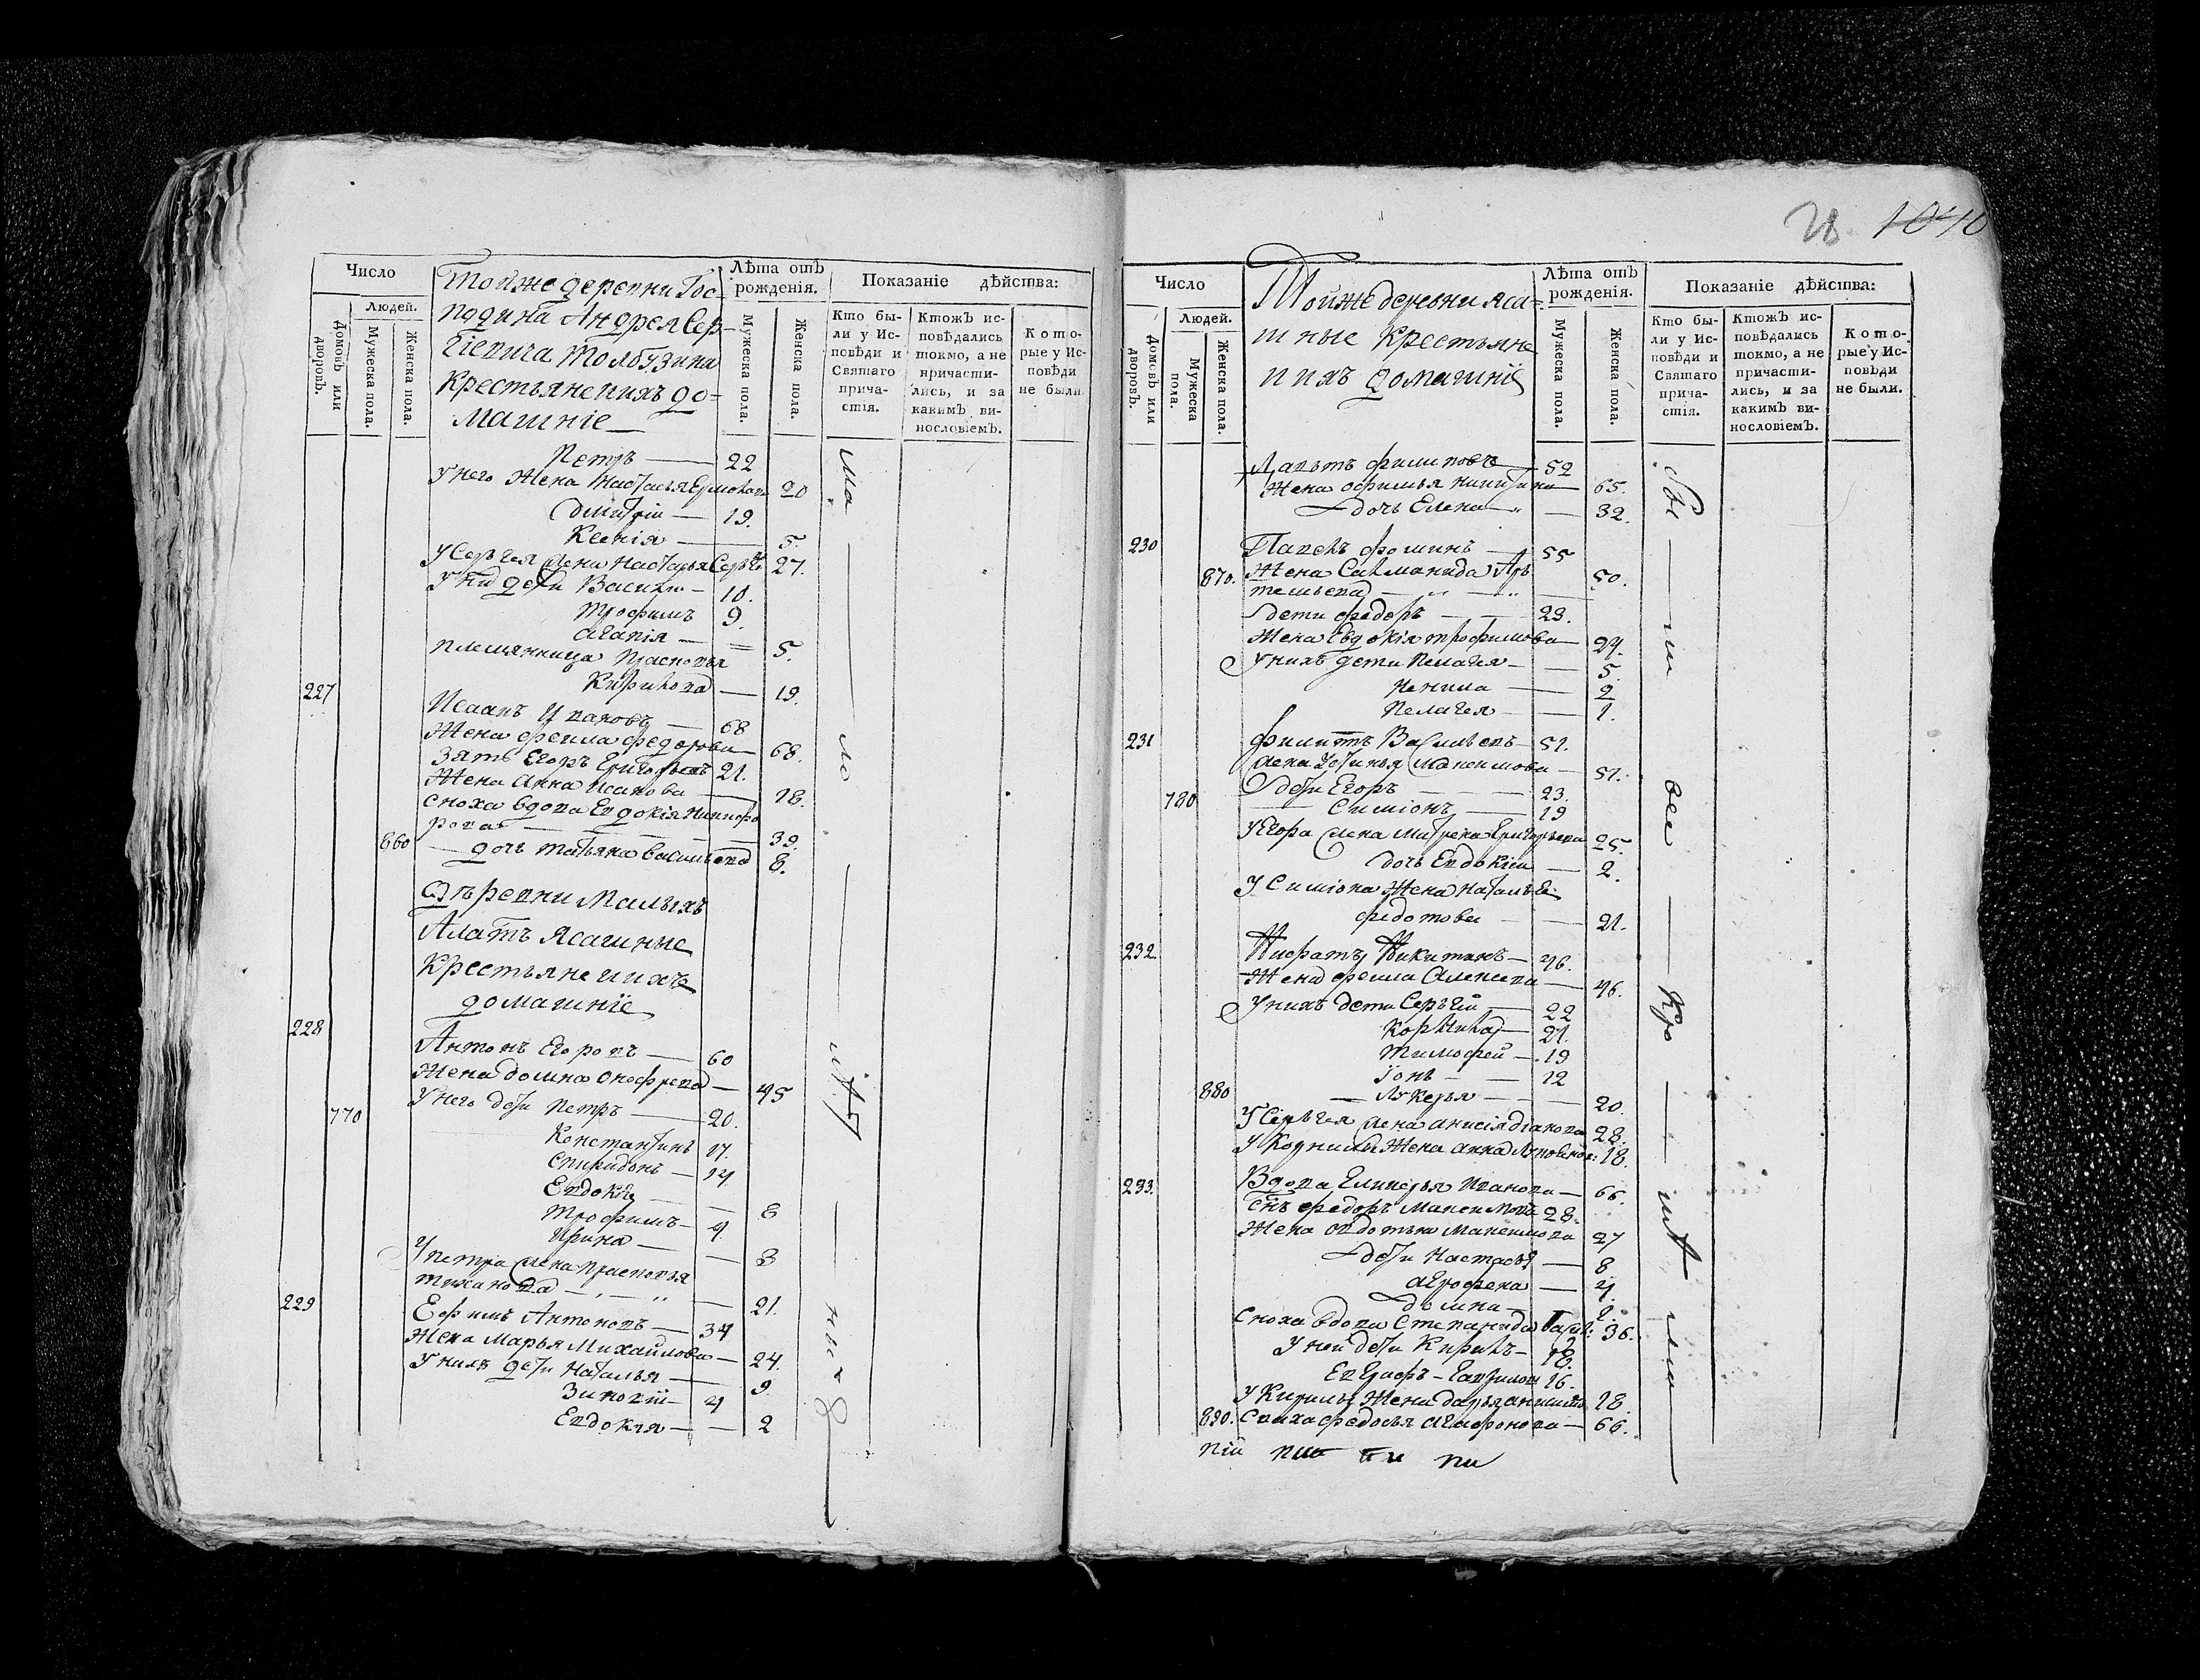 Число
Людей.
Домовъ или дворовъ.
Мужеска пола.
Женска пола.
Тойже деревни Гос-
подина Андрея Сер-
гіевича Толбузина
крестьяне ихъ до-
машніе
Лѣта отъ рожденія.
Мужеска пола.
Женска пола.
Показаніе дѣйства:
Кто бы-
ли у Ис-
повѣди и
Святаго
прича-
стія.
Ктожъ ис-
повѣдались
токмо, а не
причасти-
лись, и за
какимъ ви-
нословіемъ.
Кото-
рые у Ис-
повѣди
не были.
Петръ — 22
У него жена Настасья 20
Дмитрій — 19.
Ксенія — 5.
У Сергея жена Настасья 27.
У них дети Василій — 10.
Трофимъ 9.
Агапія — 5.
племянница Прасковья
Кирилова — 19.
227 Исаакъ Ивановъ — 68
Жена Фекла Федорова — 68.
Зять Егоръ Григорьевъ 21.
Жена Анна Исакова — 18.
Сноха вдова Евдокія Никифо
рова — 39.
860 — дочь Татьяна Васильева 8.
Деревни Малыхъ
Алатъ ясашные
крестьяне и ихъ
домашніе
228 Антонъ Егоровъ — 60
Жена Домна — 45
770 У него дети Петръ — 20.
Константинъ 17.
Спиридонъ — 14
Евдокія — 8
Трофимъ — 4.
Ирина — 3
У Петра жена Прасковья
Тиханова — 21.
229 Ефимъ Антоновъ — 34
Жена Марья Михайлова — 24.
У нихъ дети Наталья — 9
Зиновій — 4
Евдокія — 2
18 1040
Число
Людей.
Домовъ или дворовъ.
Мужеска пола.
Женска пола.
Тойже деревни яса-
шные крестьяне
и ихъ домашніе
Лѣта отъ рожденія.
Мужеска пола.
Женска пола.
Показаніе дѣйства:
Кто бы-
ли у Ис-
повѣди и
Святаго
прича-
стія.
Ктожъ ис-
повѣдались
токмо, а не
причасти-
лись, и за
какимъ ви-
нословіемъ.
Кото-
рые у Ис-
повѣди
не были.
Филиповъ — 52
Жена Офимья Никитина — 65.
дочь Елена — 32.
230 Павелъ Фоминъ — 55
870. Жена Саламанида Ар
темьева — 50.
дети Федоръ — 23.
Жена Евдокія Трофимова — 24.
У нихъ дети Пелагея — 5.
Ненила — 2
Пелагея — 1.
231 Филиппъ Васильевъ — 51.
жена Устинья Максимова — 51.
дети Егоръ — 23.
780 Симіонъ — 19
У Егора жена Матрена Григорьева 25.
дочь Евдокія — 2.
У Симіона жена Наталья
Федотова — 21.
232 Никитинъ — 46.
Жена Фекла Алексева — 46.
У нихъ дети Сергѣй — 22
Корнила — 21.
Тимофей — 19
Іонъ — 12
880 — Лукерья — 20.
У Сергея жена Анисія 28.
У Корнилы жена Анна 18.
233. Вдова Гликерья Иванова — 66
Сынъ Федоръ Максимовъ 28.
Жена Авдотья Максимова 27
дети Настасья — 8
Агрофена — 4.
Домна — 2.
Сноха вдова Степанида 36.
У ней дети Кирилъ — 18.
Евграфъ — 16.
У Кирилы жена Дарья 18.
890. Федосья Агафонова — 66.